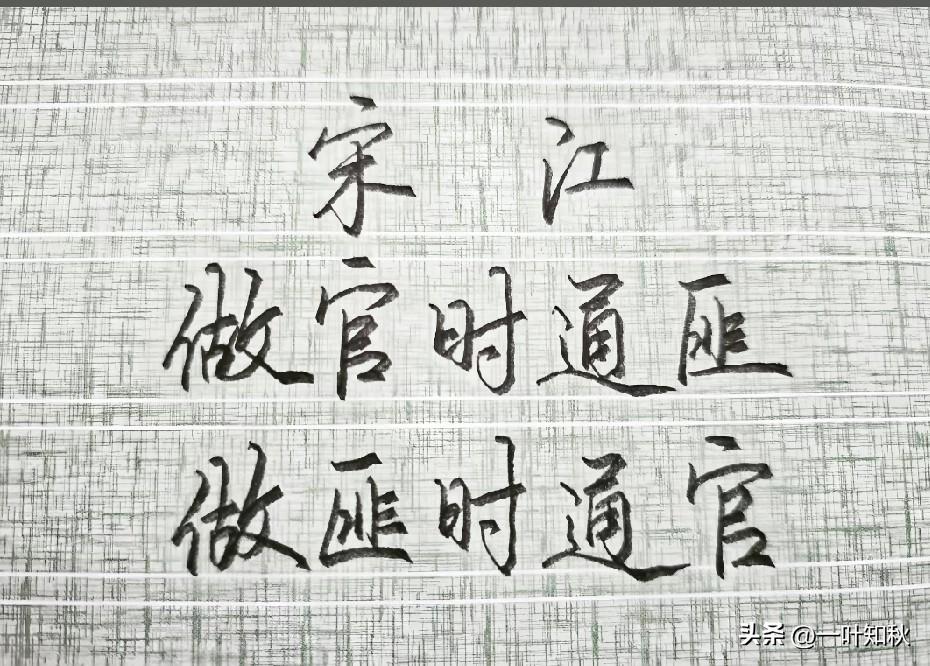 宋江
做官时通匪
做匪时通官
头条 @一叶知秋